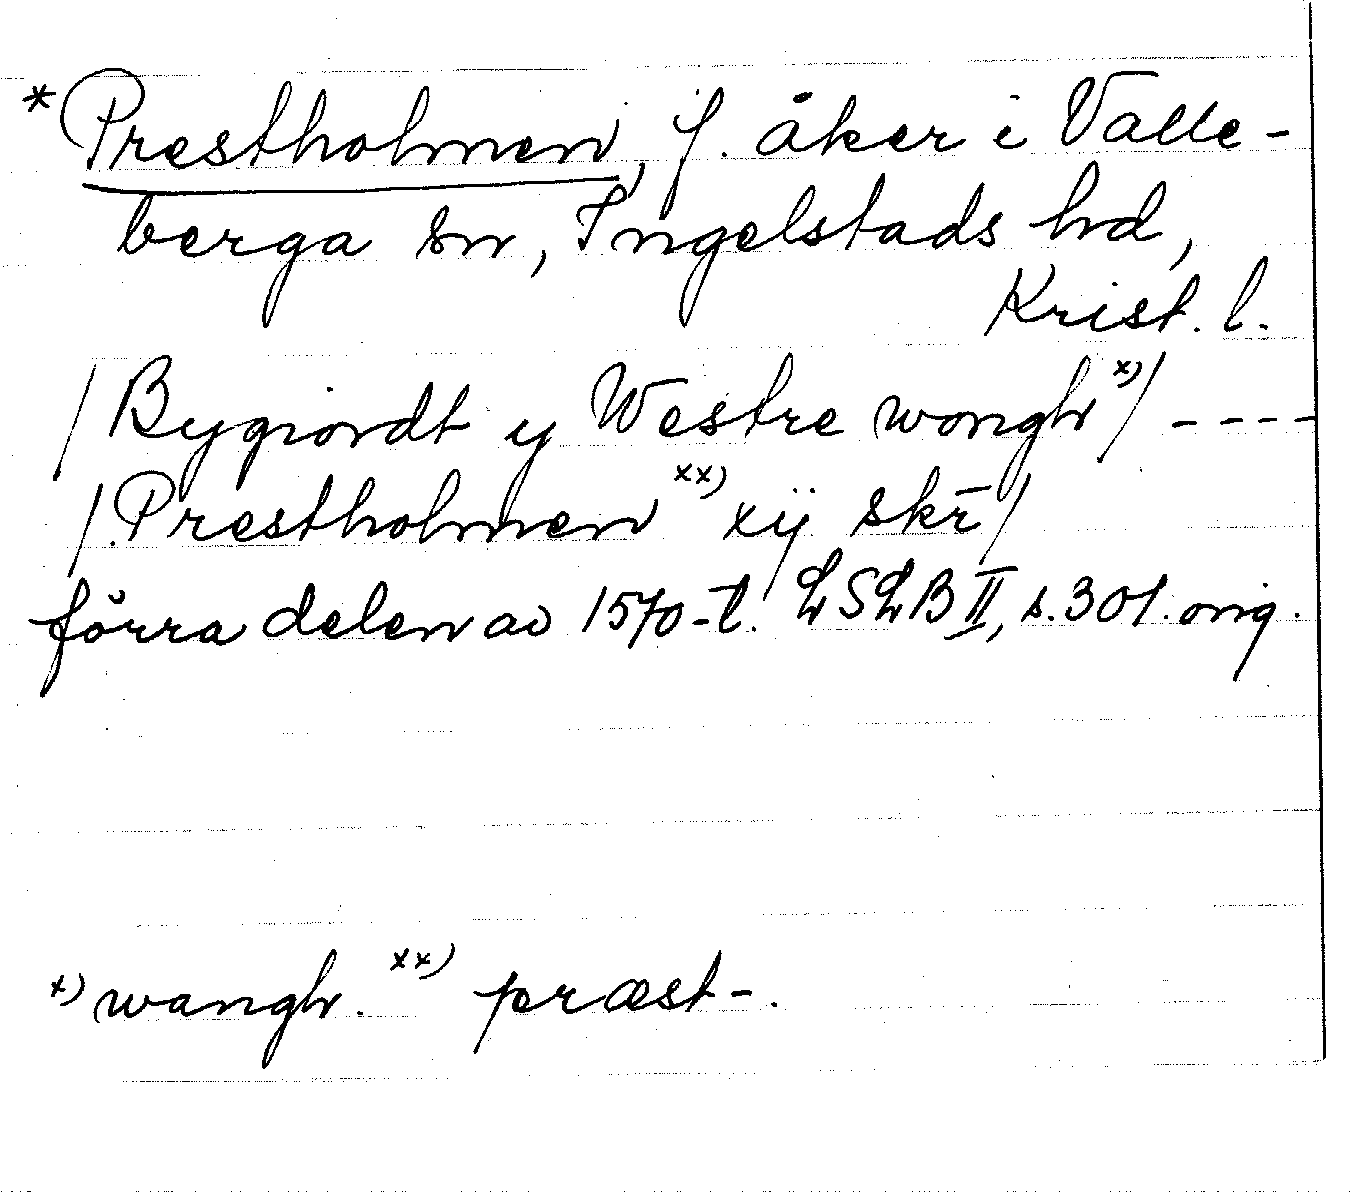 *Prestholmen, f. åker i Valle-
berga sn, Ingelstads hd,
Krist. l.
/Bygiordt y Westre wongh x)/ ----
/Prestholmen xx) xij skr̄/
förra delen av 1570-t. LSLB II, s. 301. orig.
x) wangh. xx) præst-.